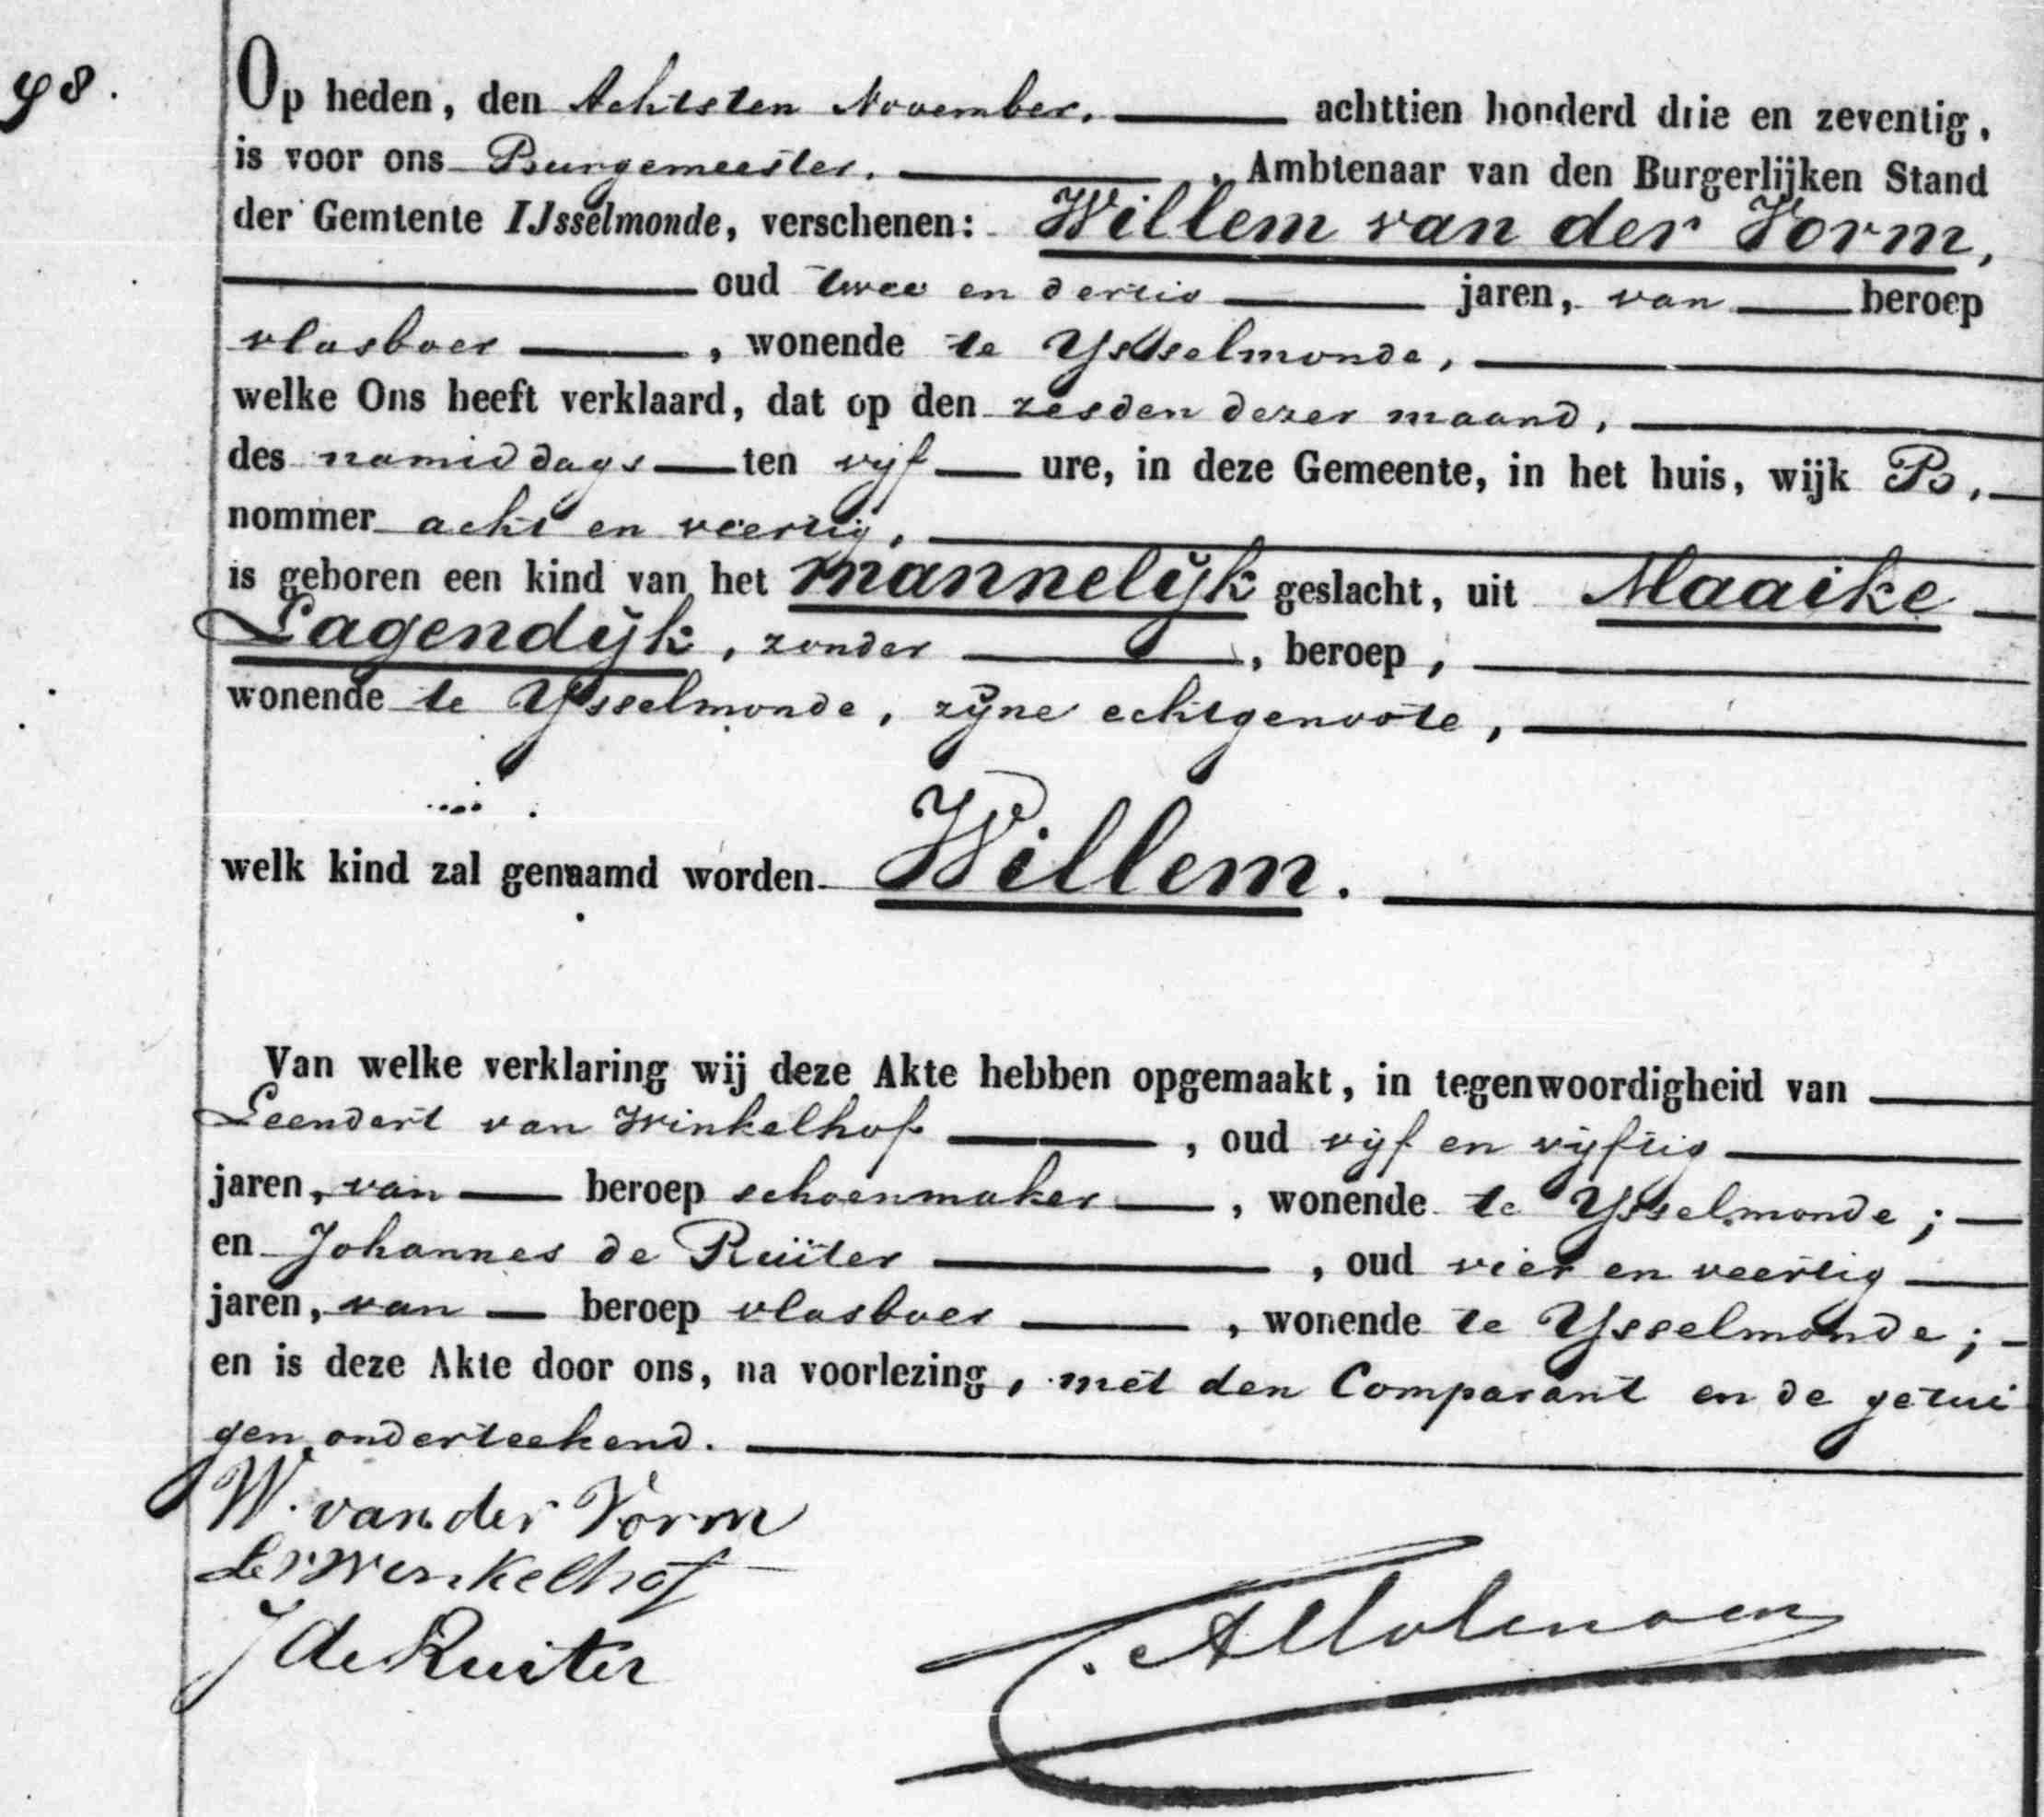 98.
Op heden, den Achtsten November. achttien honderd drie en zeventig,
is voor ons Burgemeester. , Ambtenaar van den Burgerlijken Stand
der Gemtente IJsselmonde, verschenen: Willem van der Vorm,
oud twee en dertig jaren, van beroep
vlasboer , wonende te Ysselmonde,
welke Ons heeft verklaard, dat op den zesden dezer maand,
des namiddags ten vijf ure, in deze Gemeente, in het huis, wijk B,
nommer acht en veertig,
is geboren een kind van het mannelijk geslacht, uit Maaike
Lagendijk, zonder , beroep,
wonende te Ysselmonde, zijne echtgenoote,
welk kind zal genaamd worden Willem.
Van welke verklaring wij deze Akte hebben opgemaakt, in tegenwoordigheid van
Leendert van Winkelhof , oud vijf en vijftig
jaren, van beroep schoenmaker , wonende te Ysselmonde;
en Johannes de Ruiter , oud vier en veertig
jaren, van beroep vlasboer , wonende te Ysselmonde;
en is deze Akte door ons, na voorlezing, met den Comparant en de getui
gen onderteekend.
W. van der Vorm
L v Winkelhof
J de Ruiter